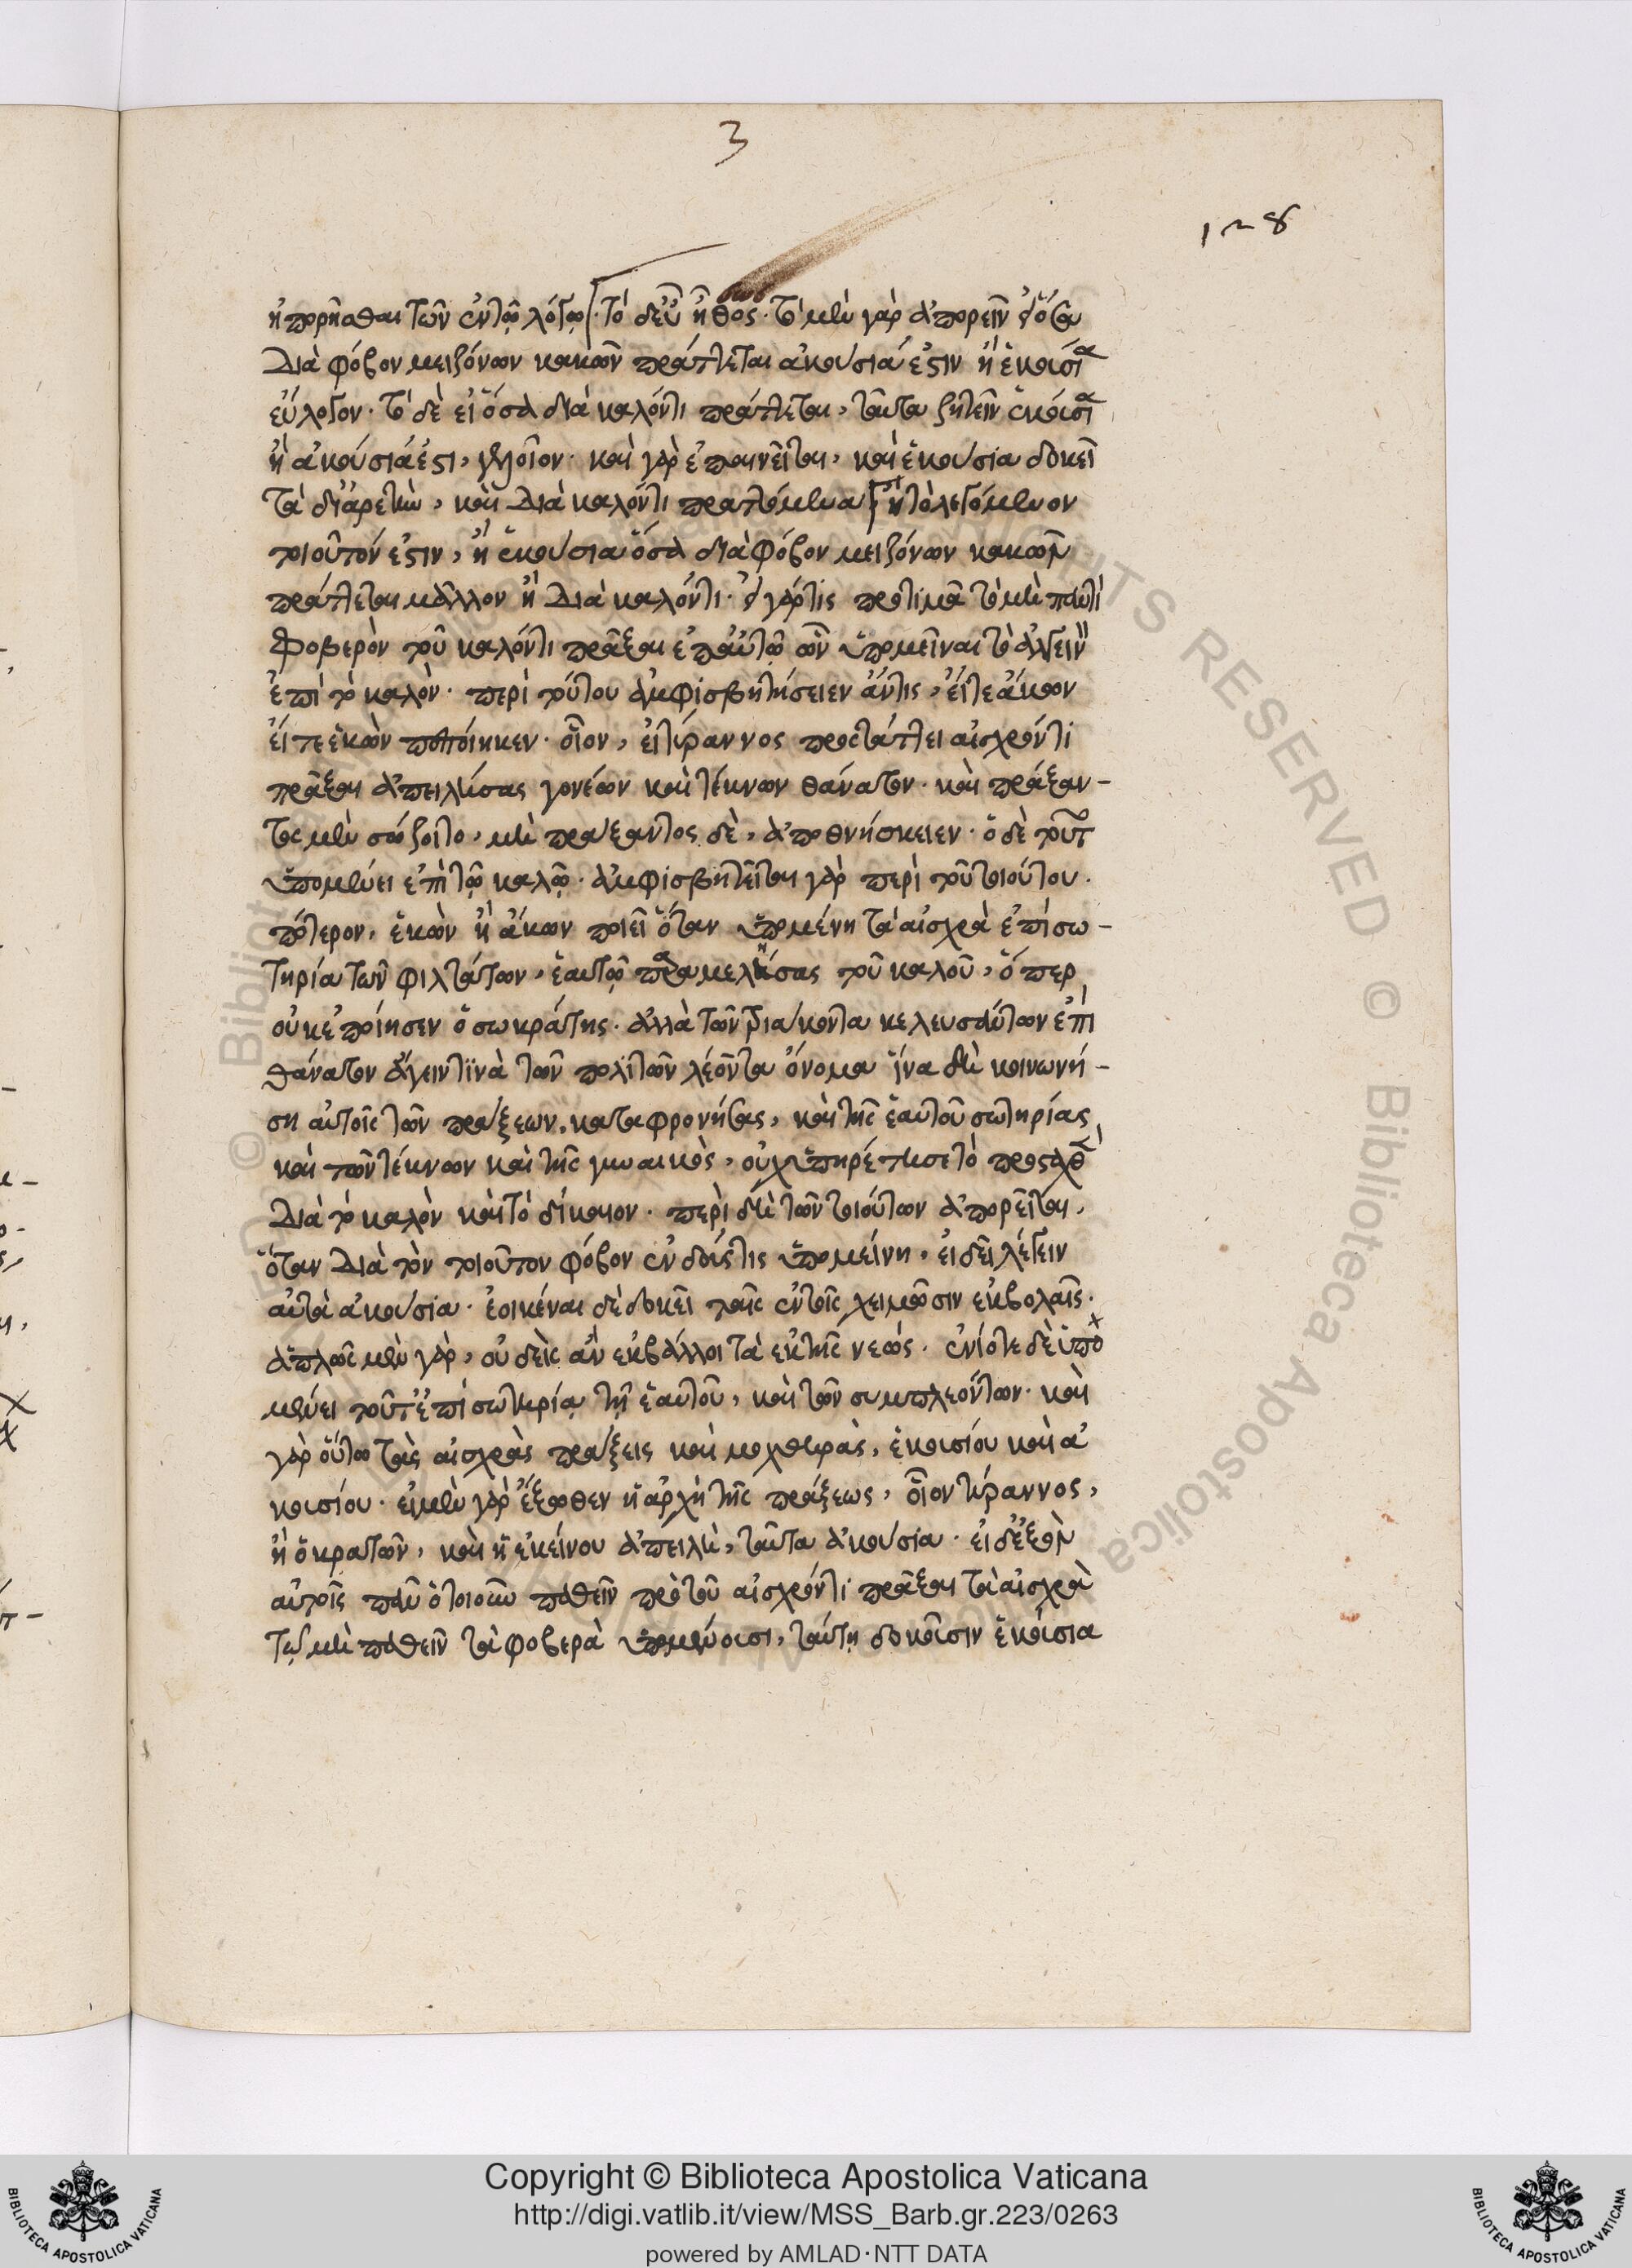 3
128
ἠπορῆσθαι τῶν ἐν τῷ λόγῳ. τὸ δ' εὖ ἦθος. τὸ μὲν γὰρ ἀπορεῖν
διὰ φόβον μειζόνων κακῶν πράττεται ἀκούσιά ἐστιν ἢ ἑκούσια
εὔλογον. τὸ δὲ εἰ ὅσα διὰ καλόν τι πράττεται, ταῦτα ζητεῖν ἑκούσια
ἢ ἀκούσιά ἐστι, γελοῖον. καὶ γὰρ ἐπαινεῖται, καὶ ἑκούσια δοκεῖ
τὰ δι' ἀρετὴν, καὶ διὰ καλόν τι πραττόμενα ἢ τὸ λεγόμενον
τοιοῦτόν ἐστιν, ἢ ἑκούσια ὅσα διὰ φόβον μειζόνων κακῶν
πράττεται μᾶλλον ἢ διὰ καλόν τι. εἰ γάρ τις προτιμᾷ τὸ μὴ παντὶ
φοβερὸν τοῦ καλόν τι πρᾶξαι ἐπ' αὐτῷ ὂν ὑπομεῖναι τὸ ἀλγεῖν
ἐπὶ τὸ καλὸν. περὶ τούτου ἀμφισβητήσειεν ἄν τις, εἴτε ἄκων
εἴτε ἑκὼν πεποίηκεν. οἷον, εἰ τύραννος προστάττει αἰσχρόν τι
πρᾶξαι ἀπειλήσας γονέων καὶ τέκνων θάνατον. καὶ πράξαν-
τος μὲν σώζοιτο, μὴ πράξαντος δὲ, ἀποθνήσκειεν. ὁ δὲ τοῦτο
ὑπομένει ἐπὶ τῷ καλῷ. ἀμφισβητεῖται γὰρ περὶ τοῦ τοιούτου.
πότερον, ἑκὼν ἢ ἄκων ποιεῖ ὅταν ὑπομένῃ τὰ αἰσχρὰ ἐπὶ σω-
τηρίᾳ τῶν φιλτάτων, ἑαυτῷ παραμελήσας τοῦ καλοῦ, ὅπερ
οὐκ ἐποίησεν ὁ σωκράτης. ἀλλὰ τῶν τριάκοντα κελευσάντων ἐπὶ
θάνατον ἄγειν τινὰ τῶν πολιτῶν λέοντα ὄνομα ἵνα δὴ κοινωνή-
σῃ αὐτοῖς τῶν πράξεων, καταφρονήσας, καὶ τῆς ἑαυτοῦ σωτηρίας
καὶ τῶν τέκνων καὶ τῆς γυναικὸς, οὐχ ὑπηρέτησε τὸ προσταχθὲν
διὰ τὸ καλὸν καὶ τὸ δίκαιον. περὶ δὴ τῶν τοιούτων ἀπορεῖται,
ὅταν διὰ τὸν τοιοῦτον φόβον ἐνδούς τις ὑπομείνῃ, εἰ δεῖ λέγειν
αὐτὰ ἀκούσια. ἐοικέναι δὲ δοκεῖ ταῖς ἐν τοῖς χειμῶσιν ἐκβολαῖς.
ἁπλῶς μὲν γὰρ, οὐδεὶς ἂν ἐκβάλλοι τὰ ἐκ τῆς νεώς. ἐνίοτε δὲ ὑπο
μένει τοῦτ' ἐπὶ σωτηρίᾳ τῇ ἑαυτοῦ, καὶ τῶν συμπλεόντων. καὶ
γὰρ οὕτω τὰς αἰσχρὰς πράξεις καὶ μοχθηρὰς, ἑκουσίου καὶ ἀ
κουσίου. εἰ μὲν γὰρ ἔξωθεν ἡ ἀρχὴ τῆς πράξεως, οἷον τύραννος,
ἢ ὁ κρατῶν, καὶ ἡ ἐκείνου ἀπειλὴ, ταῦτα ἀκούσια. εἰ δ' ἐξὸν
αὐτοῖς πᾶν ὁτιοῦν παθεῖν πρὸ τοῦ αἰσχρόν τι πρᾶξαι τὰ αἰσχρὰ
τῷ μὴ παθεῖν τὰ φοβερὰ ὑπομένουσι, ταύτῃ δοκοῦσιν ἑκούσια
Copyright © Biblioteca Apostolica Vaticana
http://digi.vatlib.it/view/MSS_Barb.gr.223/0263
powered by AMLAD·NTT DATA